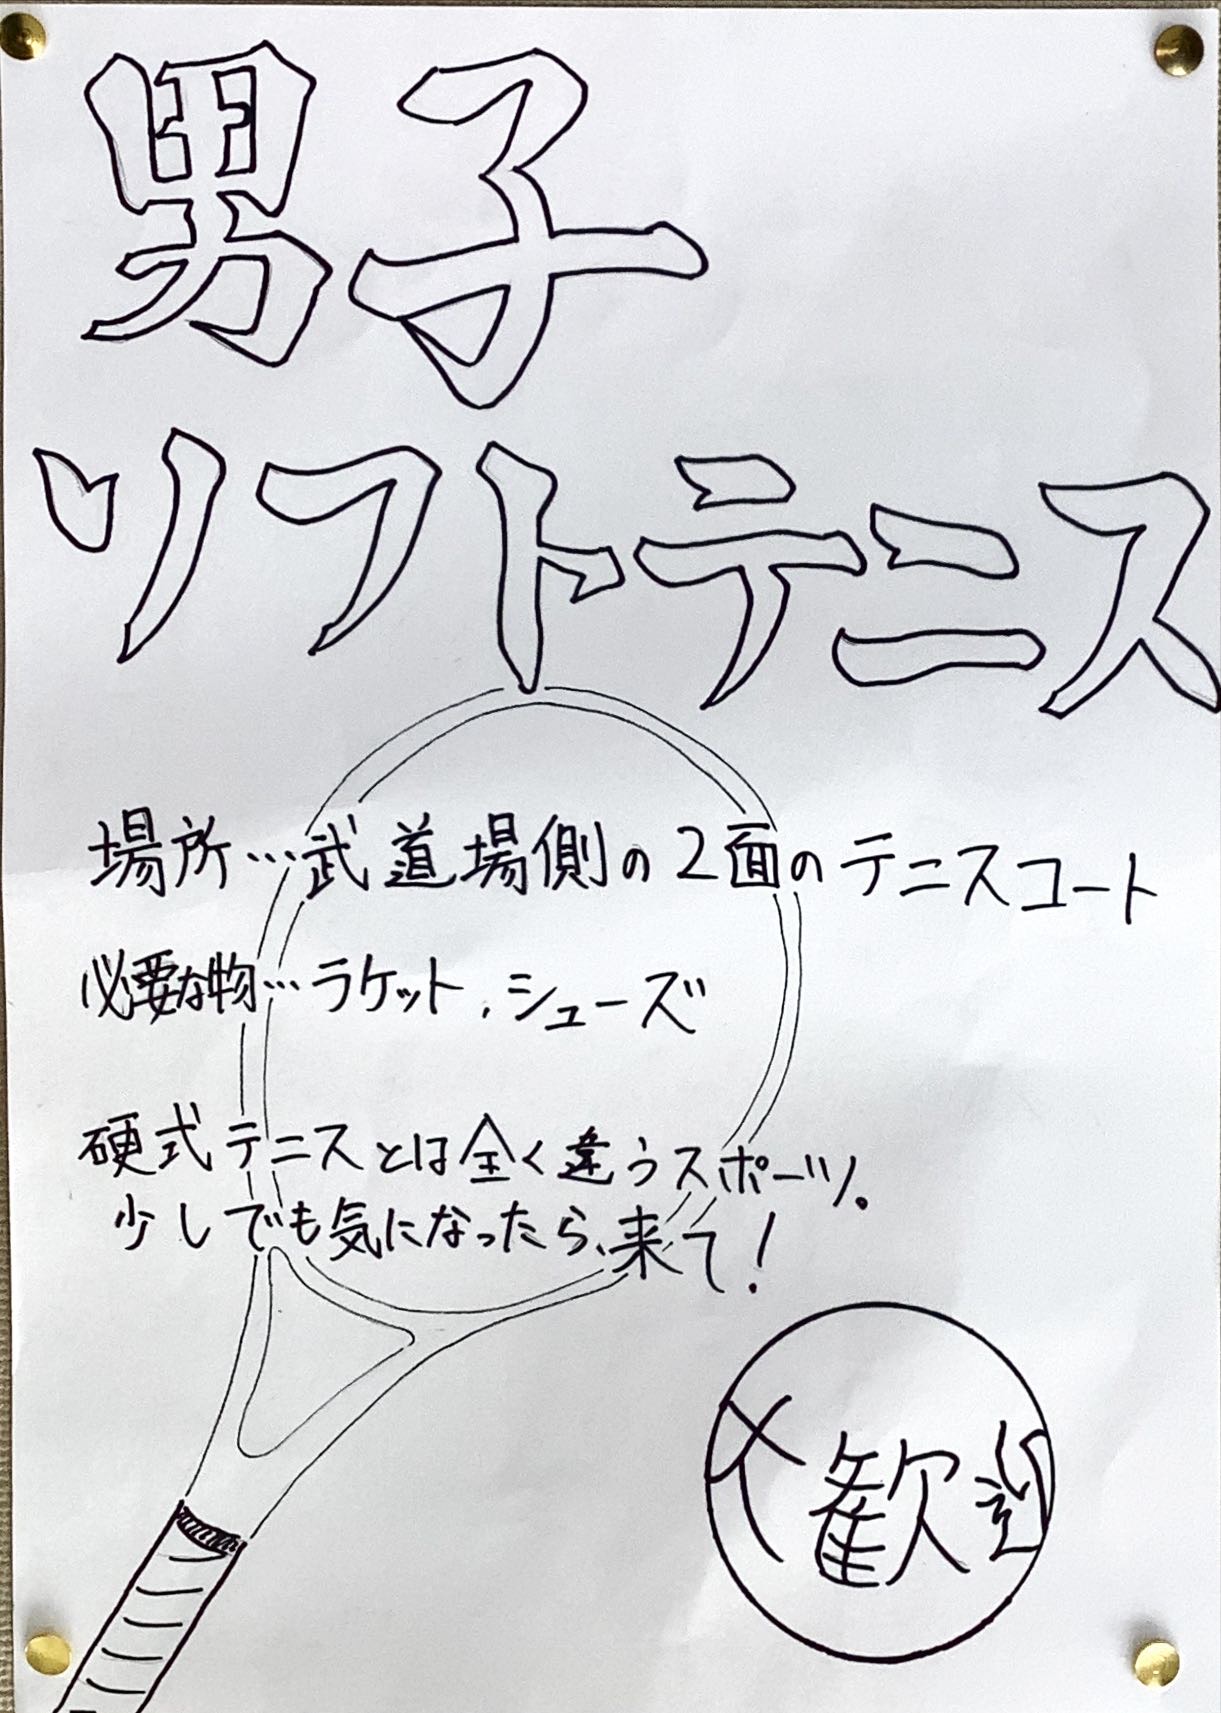 男子
ソフトテニス
場所…武道場側の2面のテニスコート
必要な物…ラケット、シューズ
硬式テニスとは全く違うスポーツ。
少しでも気になったら、来て!
大歓迎